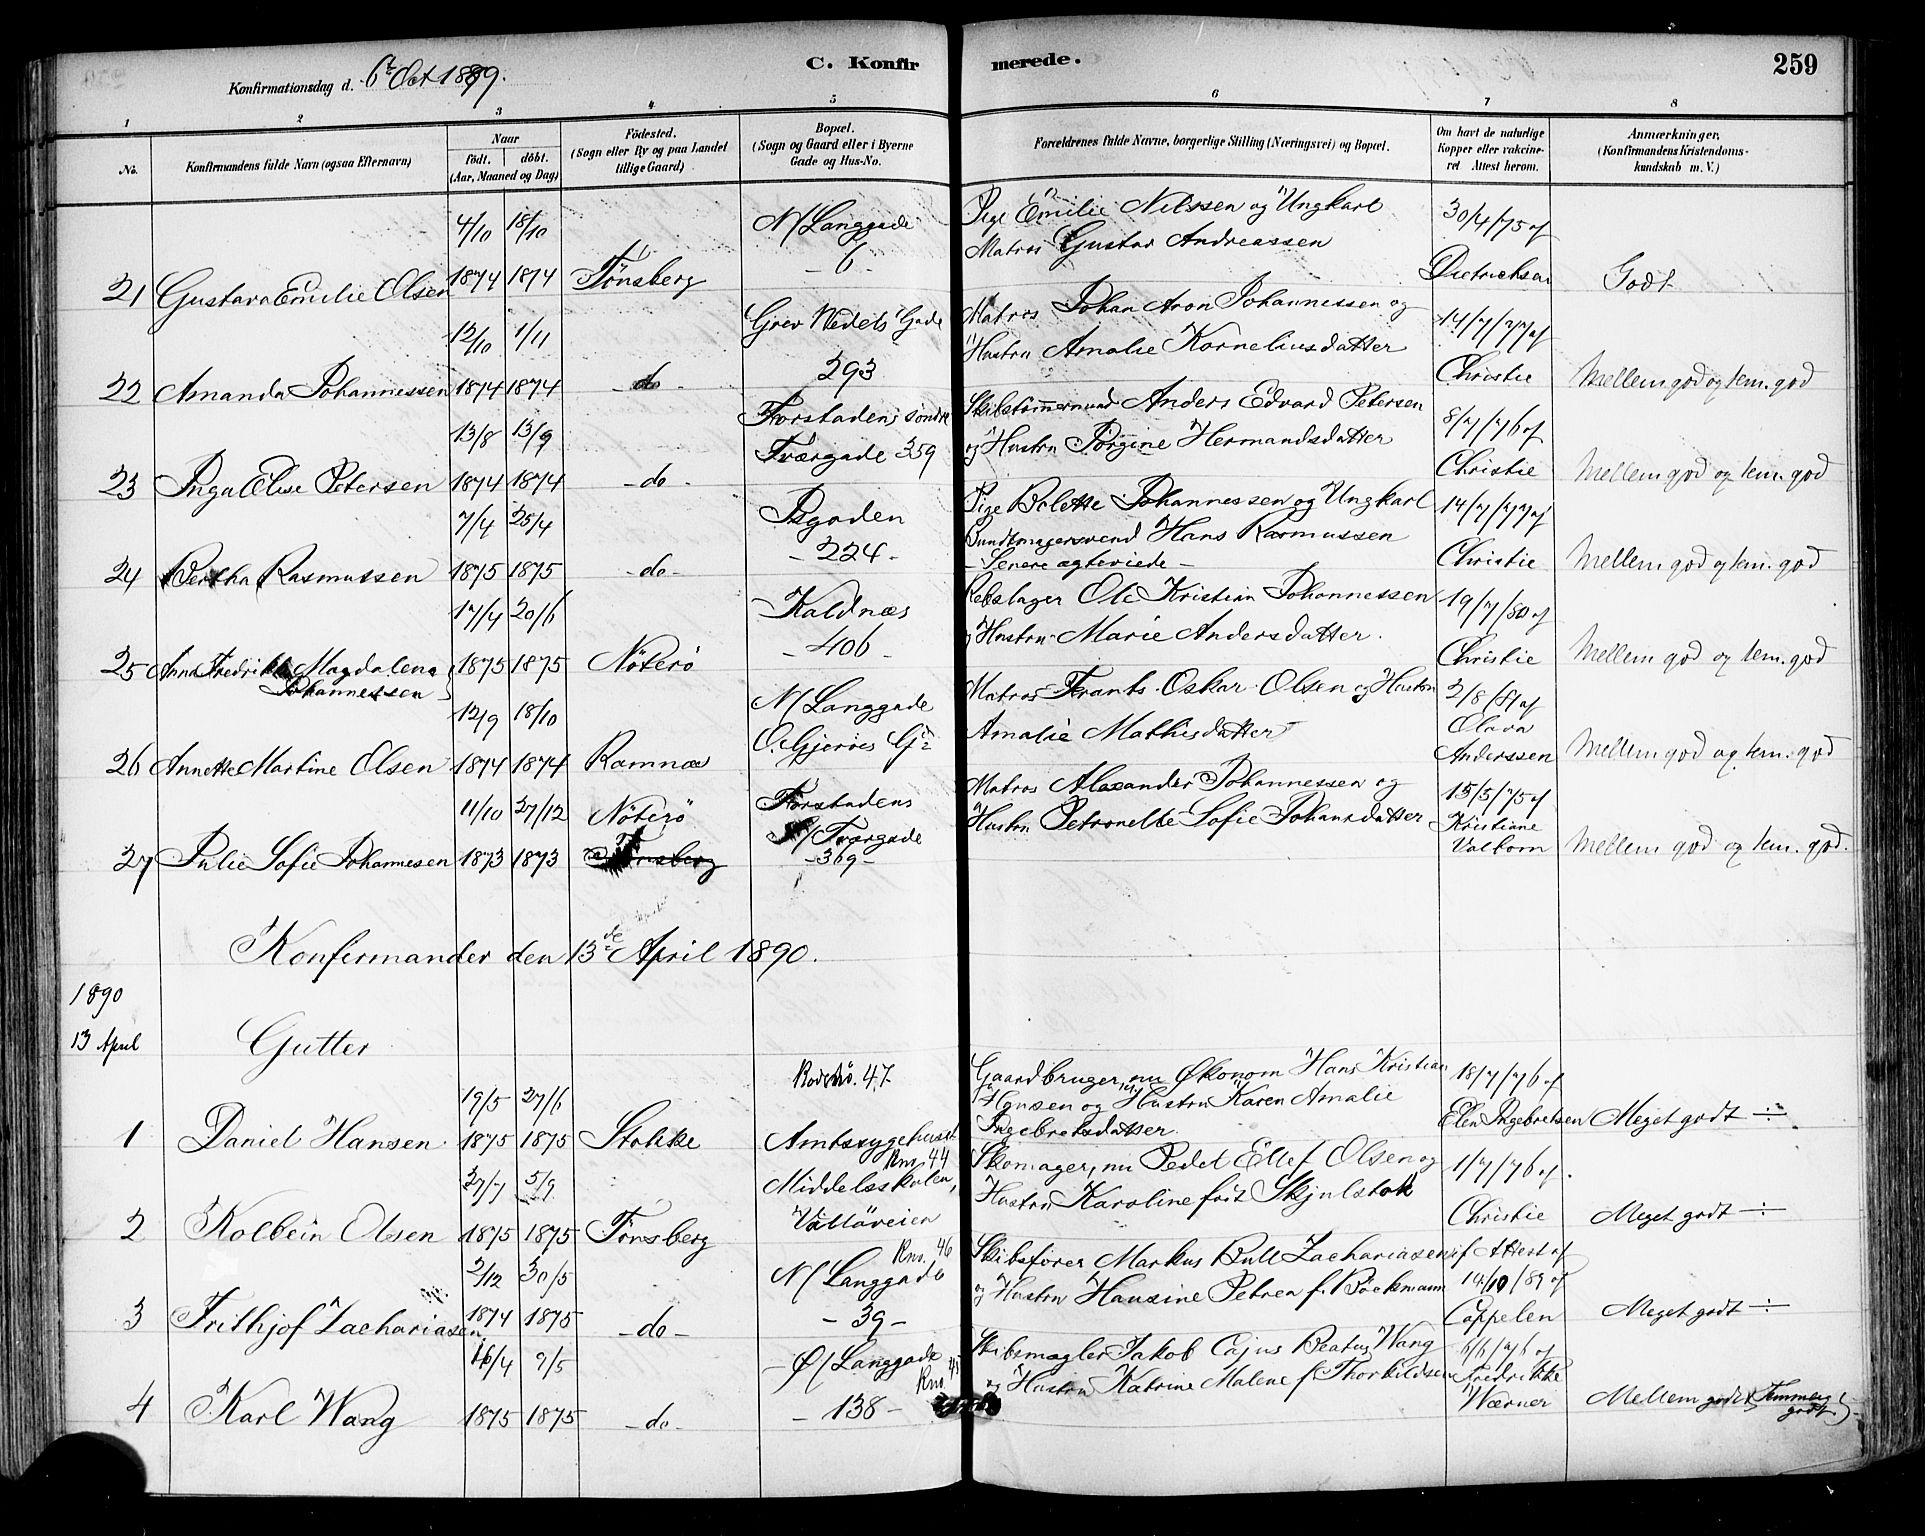 Konfirmationsdag d. 6te Oct 1889.
C. Konfir
merede.
259
1 2 3 4 5 6 7 8
No.
Konfirmandens fulde Navn (ogsaa Efternavn)
Naar
födt. döbt.
(Aar, Maaned og Dag)
Födested.
(Sogn eller By og paa Landet
tillige Gaard)
Bopæl.
(Sogn og Gaard eller i Byerne
Gade og Hus-No.
Forældrenes fulde Navne, borgerlige Stilling (Næringsvei) og Bopæl.
Om havt de naturlige
Kopper eller vakcine-
ret Attest herom.
Anmærkninger,
(Konfirmandens Kristendoms-
kundskab m. V.)
4/10 18/10 N/Langgade Pige Emilie Nilssen og Ungkarl 30/4/75 af
- 6 - Matros Gustav Andreassen
21 Gustava Emilie Olsen 1874 1874 Tønsberg Dietrichsen Godt
12/10 1/11 Grev Wedels Gade Matros Johan Aron Johannessen og 14/7/77 af
293 Hustru Amalie Korneliusdatter
22 Amanda Johannessen 1874 1874 - do - Christie Mellem god og tem. god
13/8 13/9 Forstadens søndre Skibstømmermand Anders Edvard Petersen 8/7/76 af
Tværgade 359 og Hustru Jørgine Hermandsdatter
23 Inga Elise Petersen 1874 1874 - do - Christie Mellem god og tem. god
7/4 25/4 Isgaden Pige Bolette Johannessen og Ungkarl 14/7/77 af
- 224 - Buntmagersvend Hans Rasmussen
24 Bertha Rasmussen 1875 1875 - do - - Senere ægteviede - Christie Mellem god og tem. god
17/4 20/6 Kaldnæs Rebslager Ole Kristian Johannessen 19/7/80 af
- 406 - og Hustru Marie Andersdatter.
25 Anna Fredrikke Magdalena 1875 1875 Nöterö Christie Mellem god og tem. god
Johannessen
12/9 18/10 N/Langgade Matros Frants Oskar Olsen og Hustru 2/8/87 af
O. Gjerøes Gd Amalie Mathisdatter Olava
26 Annette Martine Olsen 1874 1874 Ramnæs Anderssen Mellem god og tem. god
11/10 27/12 Nöterö Forstadens Matros Alexander Johannessen og 15/5/75 af
S/Tværgade Hustru Petronelle Sofie Johansdatter Kristiane
27 Julie Sofie Johannesen 1873 1873 Tønsberg - 369 - Valborn Mellem god og tem. god.
Konfirmander den 13de April 1890.
1890
13 April Gutter
19/5 27/6 Rode No. 47. Gaardbruger, nu Økonom Hans Kristian 18/7/76 af
Hansen og Hustru Karen Amalie
1 Daniel Hansen 1875 1875 Stokke Amtssygehuset Ingebretsdatter Elen Ingebretsen Meget godt -:-
27/7 5/9 Rno. 44 Middelsskolen, Skomager, nu Pedel Ellef Olsen og 1/7/76 af.
Hustru Karoline født Skjulstok
2 Kolbein Olsen 1875 1875 Tønsberg Valløveien Christie Meget godt -:-
2/12 30/5 Rno. 46 N/Langgade Skibsfører Markus Bull Zachariasen if. Attest af
og Hustru Hansine Petrea f. Böckmann 14/10/89 af
3 Frithjof Zachariasen 1874 1875 - do - - 39 - Cappelen Meget godt -:-
16/4 9/5 Ø/Langgade Skibsmægler Jakob Cajus Beatus Wang 6/6/76 af
Rno. 45 og Hustru Katrine Malene f. Thorkildsen Fredrikke
4 Karl Wang 1875 1875 - do - - 138 - Wærner Mellem godt (Temmelig godt) -